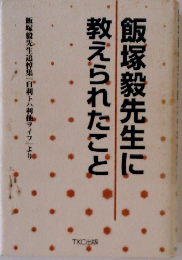 飯塚毅先生に
教えられたこと
飯塚毅先生追悼集『自利トハ利他ヲイフ』より
TKC出版